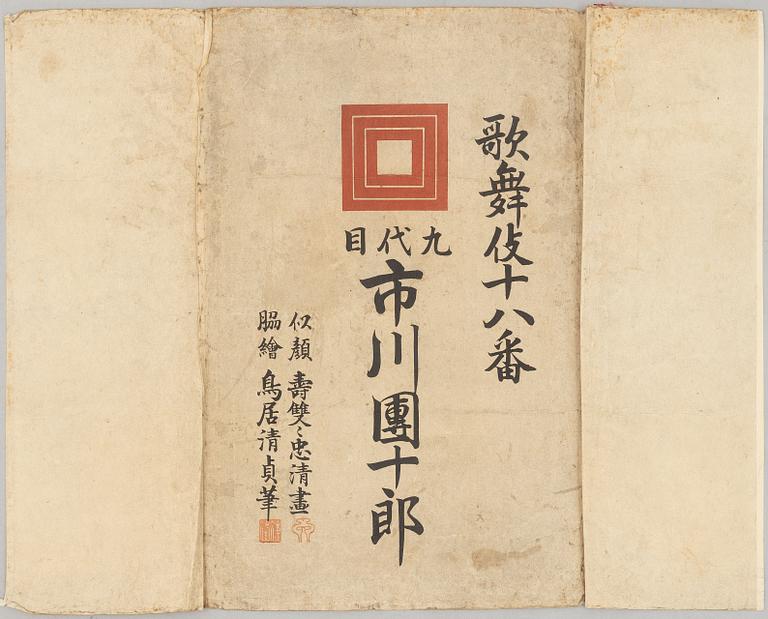 歌舞伎十八番
九代目
市川團十郎
似顏 壽雙〻忠清畫
脇繪 鳥居清貞筆